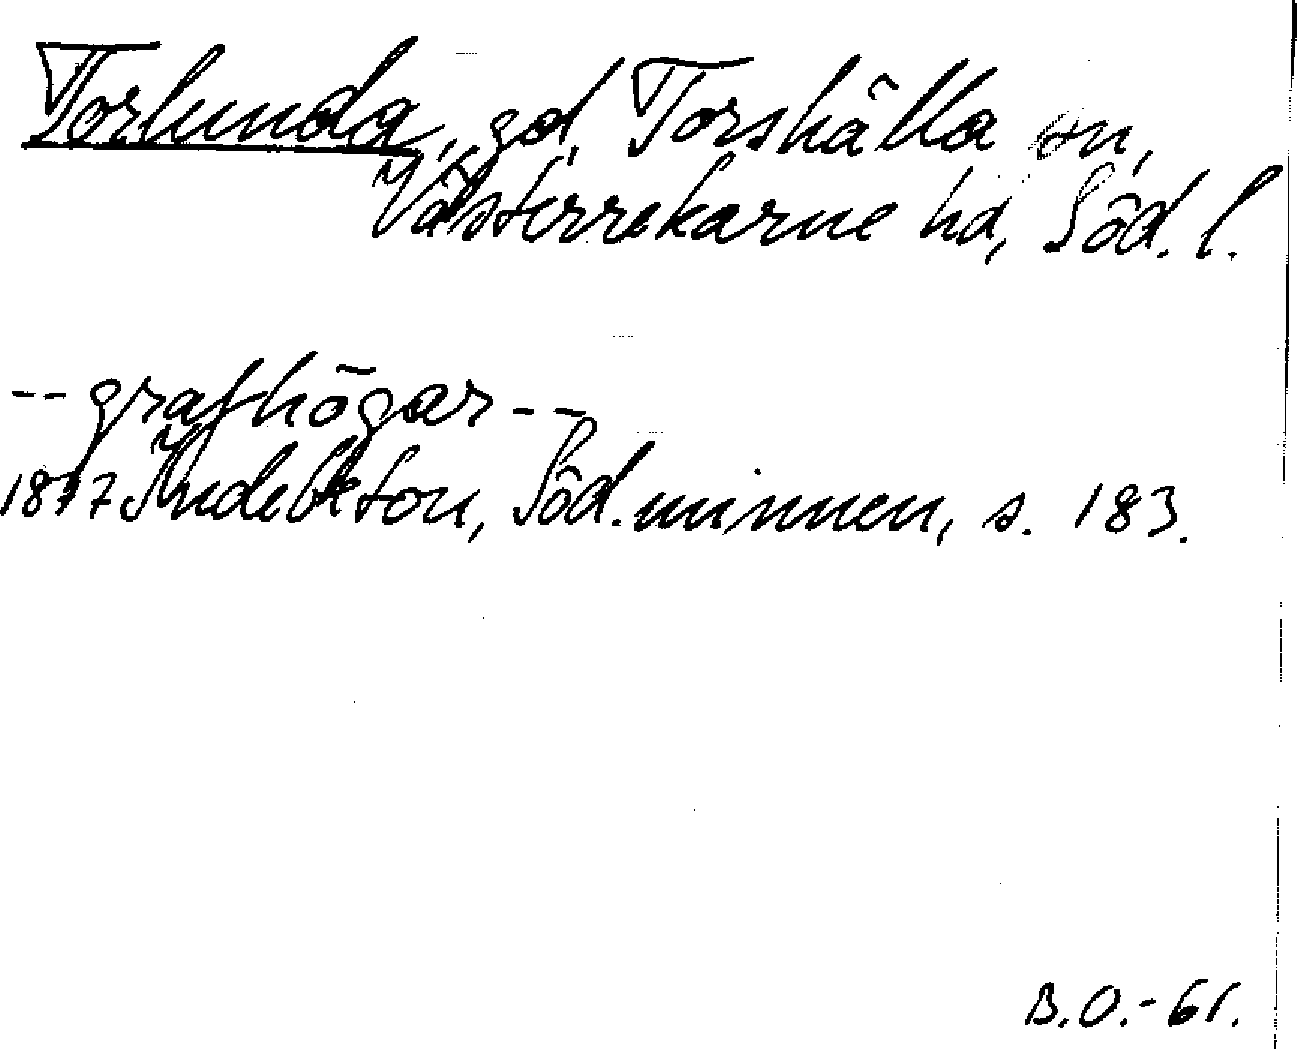 Torlunda, gd, Torshälla sn,
Västerrekarne hd, Söd. l.
-- grafhögar --
1877 Indebetou, Söd. minnen, s. 183.
B.O.-61.